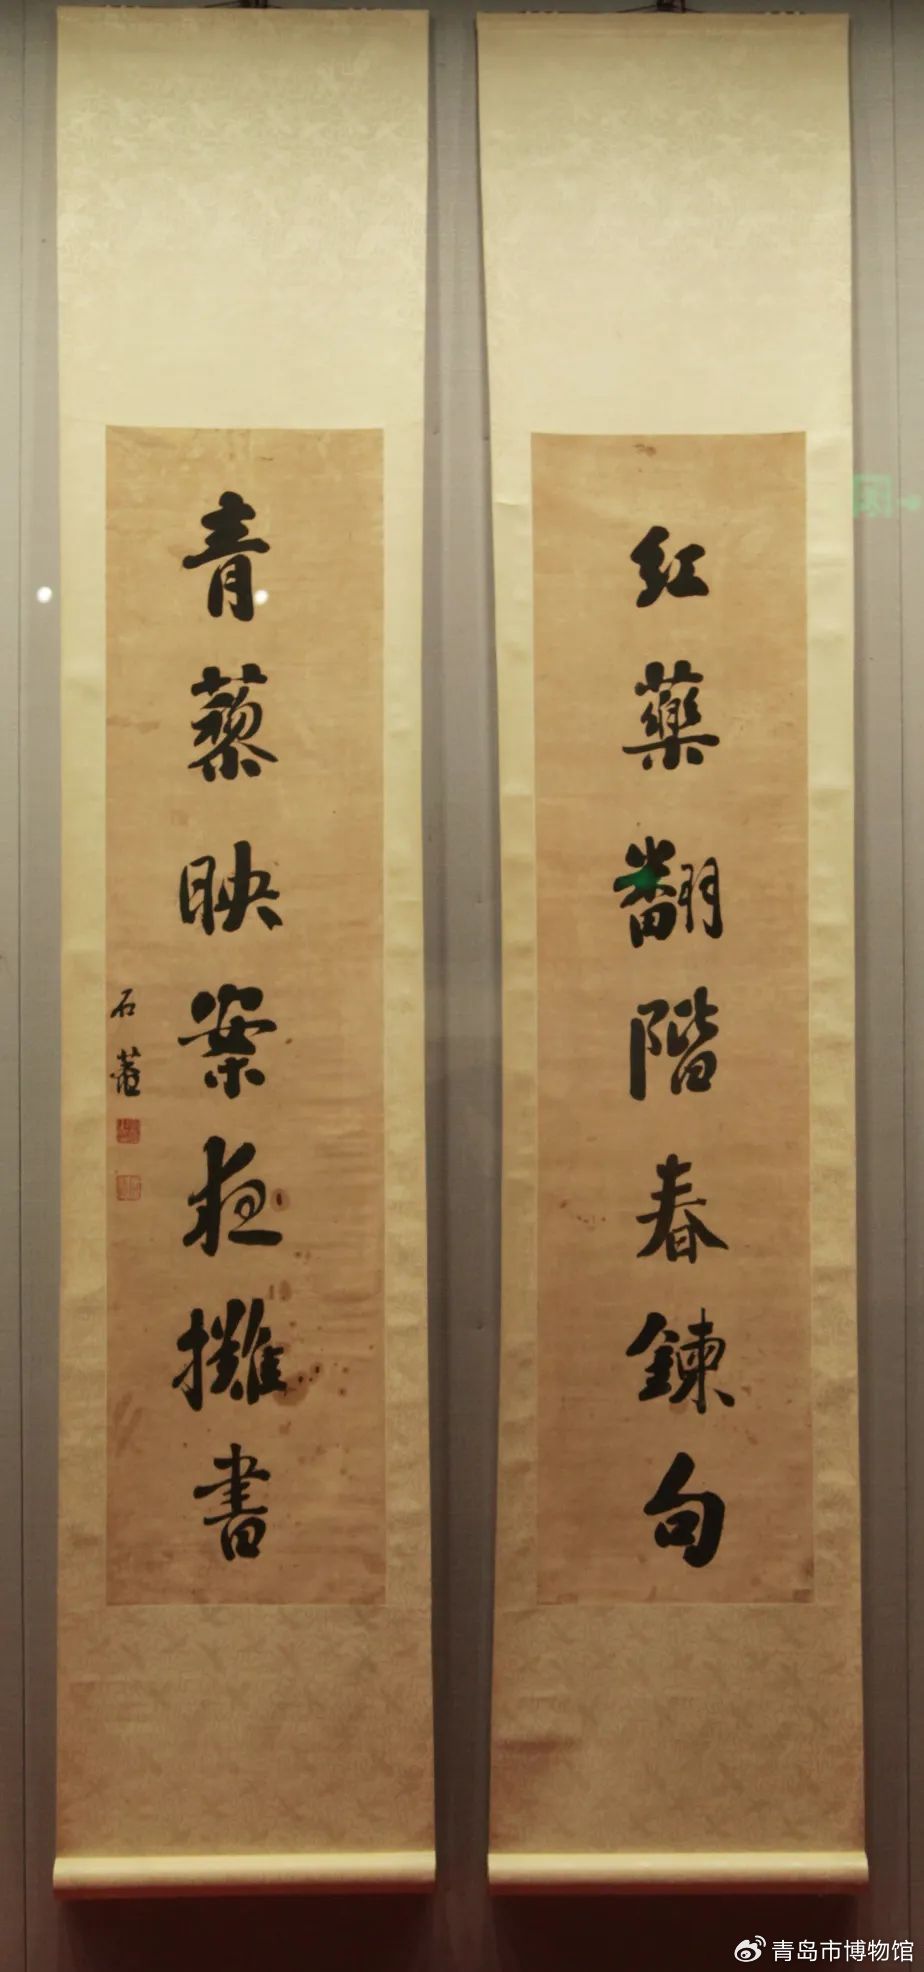 红药翻阶春鍊句
青藜映案夜摊书
石菴
青岛市博物馆